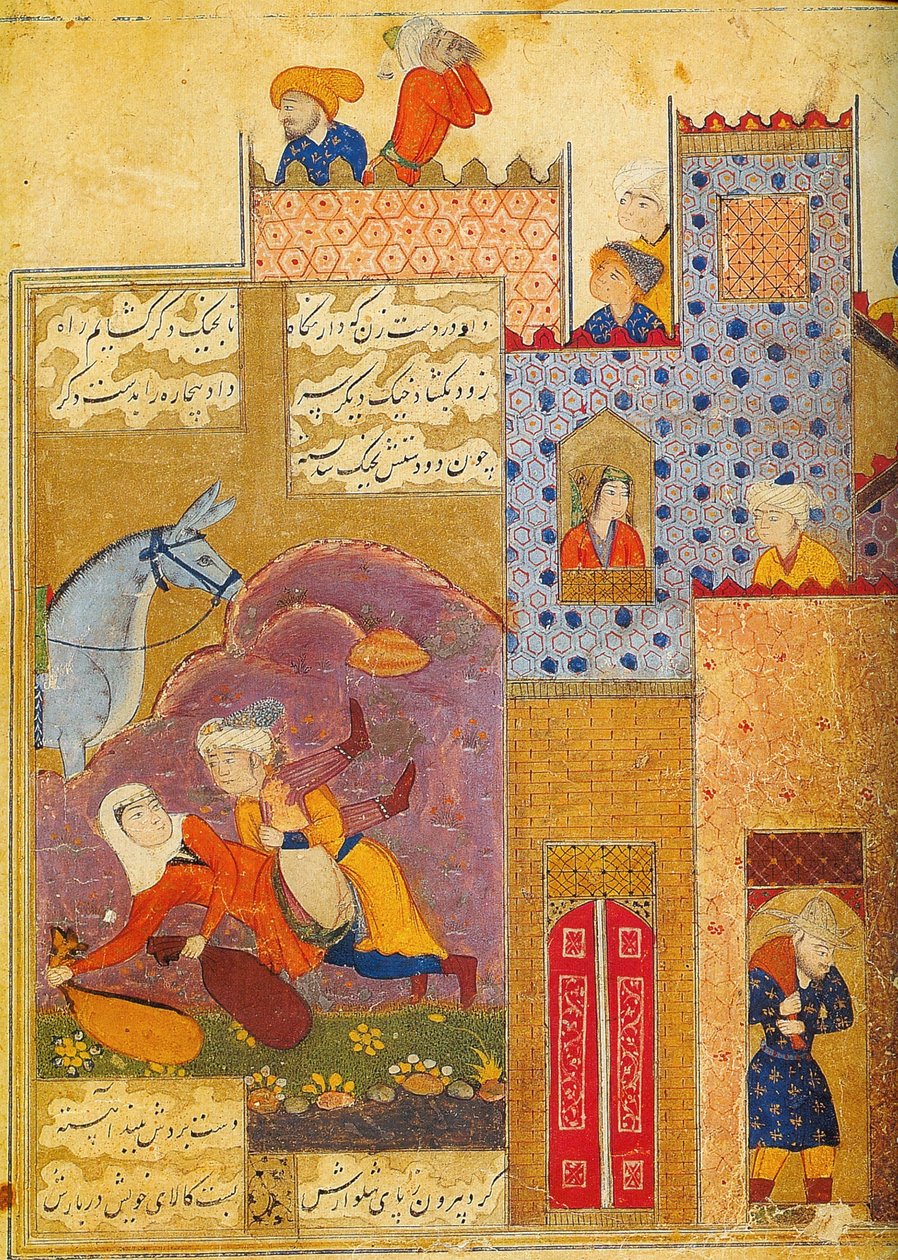 داد در دست زن که دار نگاه
تا بخیک دگر گشایم راه
زود بگشاد خیک دیگر سر
داد بیچاره را بدست دگر
چون دو دستش بخیک شد بسته
دست بردش ببند آهسته
کرد بیرون ز پای شلوارش
بست کالای خویش در بارش